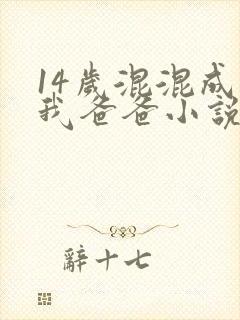 14歲混混成
我爸爸小說
辭十七